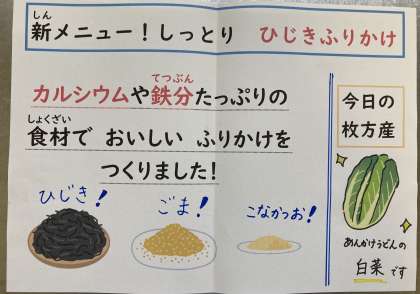 しん
新メニュー！しっとり ひじきふりかけ
てつぶん
カルシウムや鉄分たっぷりの
しょくざい
食材で おいしい ふりかけを
つくりました！
ひじき！
ごま！
こなかつお！
今日の
枚方産
あんかけうどんの
白菜です